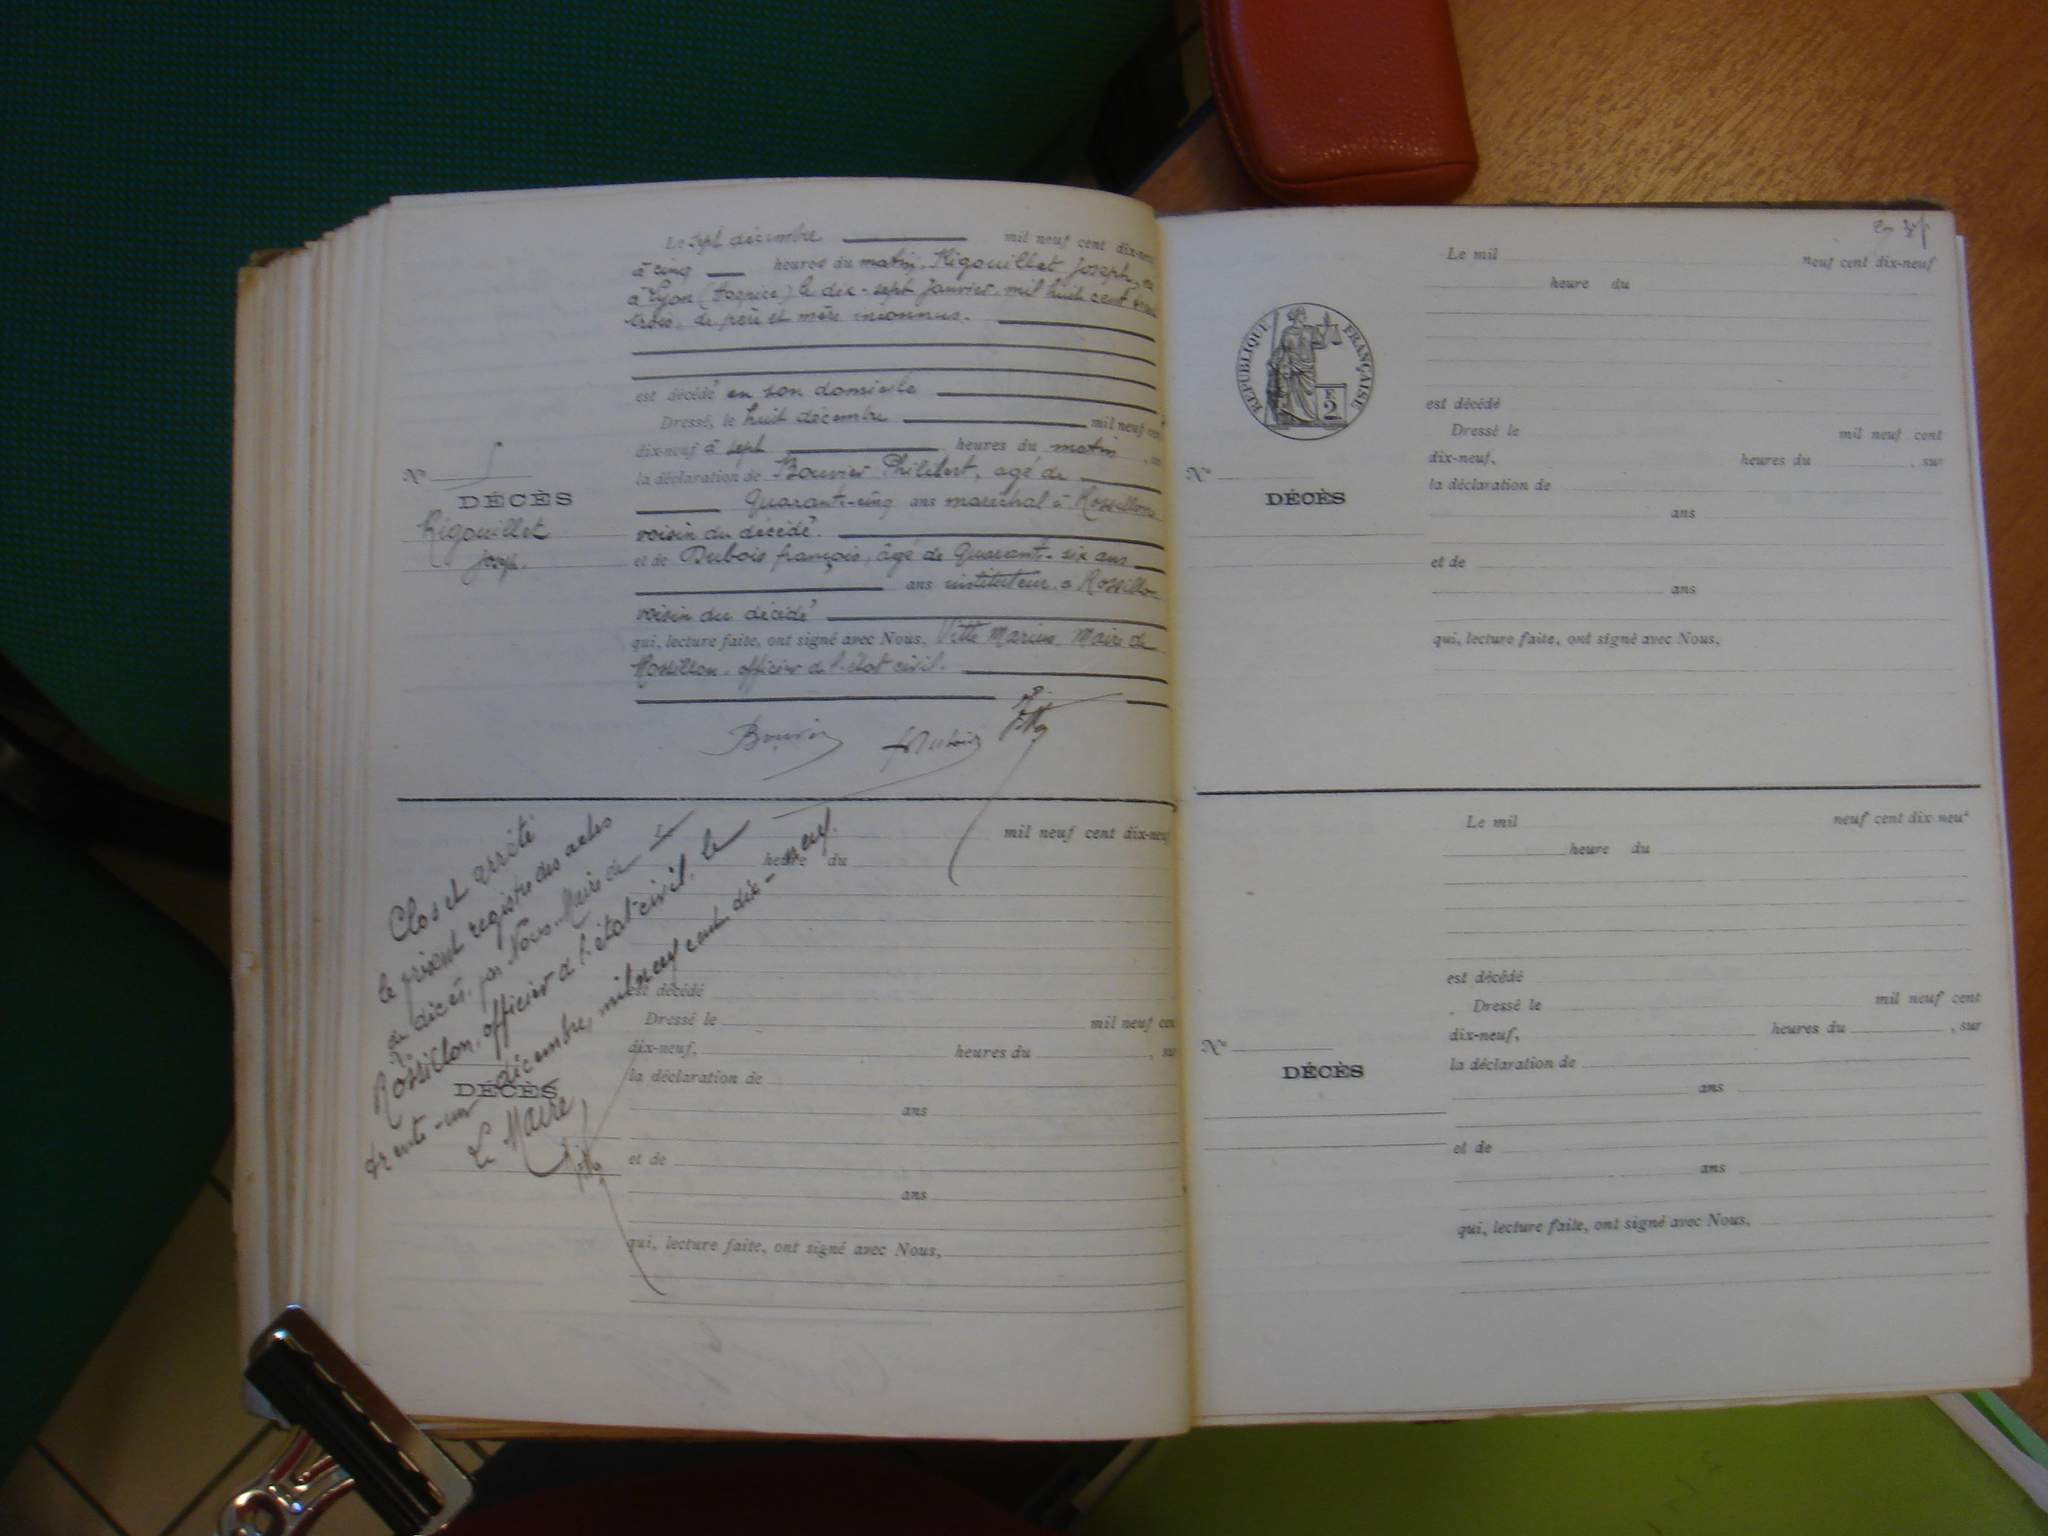 Le sept décembre mil neuf cent dix-neuf
à cinq heures du matin, Rigouillet Joseph, né
à Lyon (hospice) le dix-sept Janvier mil huit cent
trois, de père et mère inconnus.
est décédé en son domicile
Dressé, le huit décembre mil neuf cent
dix-neuf à sept heures du matin, sur
la déclaration de Bouvier Philibert, agé de
Quarante-cinq ans marechal à Rossillon
voisin du décédé
et de Dubois françois, âgé de Quarante-six ans
ans instituteur à Rossillon
voisin du décédé
qui, lecture faite, ont signé avec Nous, Vitte Marius Maire de
Rossillon, officier de l'état civil.
Bouvier Dubois Vitte
N° 5
DÉCÈS
Rigouillet
Joseph.
Clos et arrêté
le présent registre des actes
de décès, par Nous, Maire de
Rossillon, officier de l'état-civil, le
trente-un décembre, mil neuf cent dix-neuf.
Le Maire,
Vitte
mil neuf cent dix-neuf
heure du
est décédé
Dressé le mil neuf cent
dix-neuf, heures du , sur
la déclaration de
ans
et de
ans
qui, lecture faite, ont signé avec Nous,
DÉCÈS
RÉPUBLIQUE FRANÇAISE
2
Le mil neuf cent dix-neuf
heure du
est décédé
Dressé le mil neuf cent
dix-neuf, heures du , sur
la déclaration de
ans
et de
ans
qui, lecture faite, ont signé avec Nous,
N°
DÉCÈS
Le mil neuf cent dix-neuf
heure du
est décédé
Dressé le mil neuf cent
dix-neuf, heures du , sur
la déclaration de
ans
et de
ans
qui, lecture faite, ont signé avec Nous,
N°
DÉCÈS